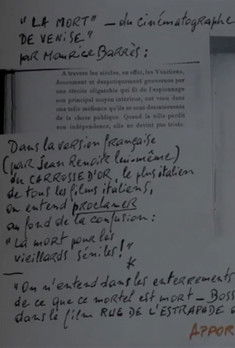 "LA MORT" — du cinématographe
DE VENISE"
par Maurice Barrès :
A travers les siècles, en effet, les Vénitiens,
doucement et despotiquement gouvernés par
une étroite oligarchie qui fit de l'espionnage
son principal moyen intérieur, ont vécu dans
une telle méfiance qu'ils se sont désintéressés
de la chose publique. Quand la ville perdit
son indépendance, elle ne devint pas triste.
Dans la version française
(par Jean Renoir lui-même)
du CARROSSE D'OR, le plus italien
de tous les films italiens,
on entend proclamer
au fond de la confusion :
"La mort pour les
vieillards séniles !"
*
— "On n'entend dans les enterrements
de ce que ce mortel est mort — BOSS
dans le film RUE DE L'ESTRAPADE
APPOR